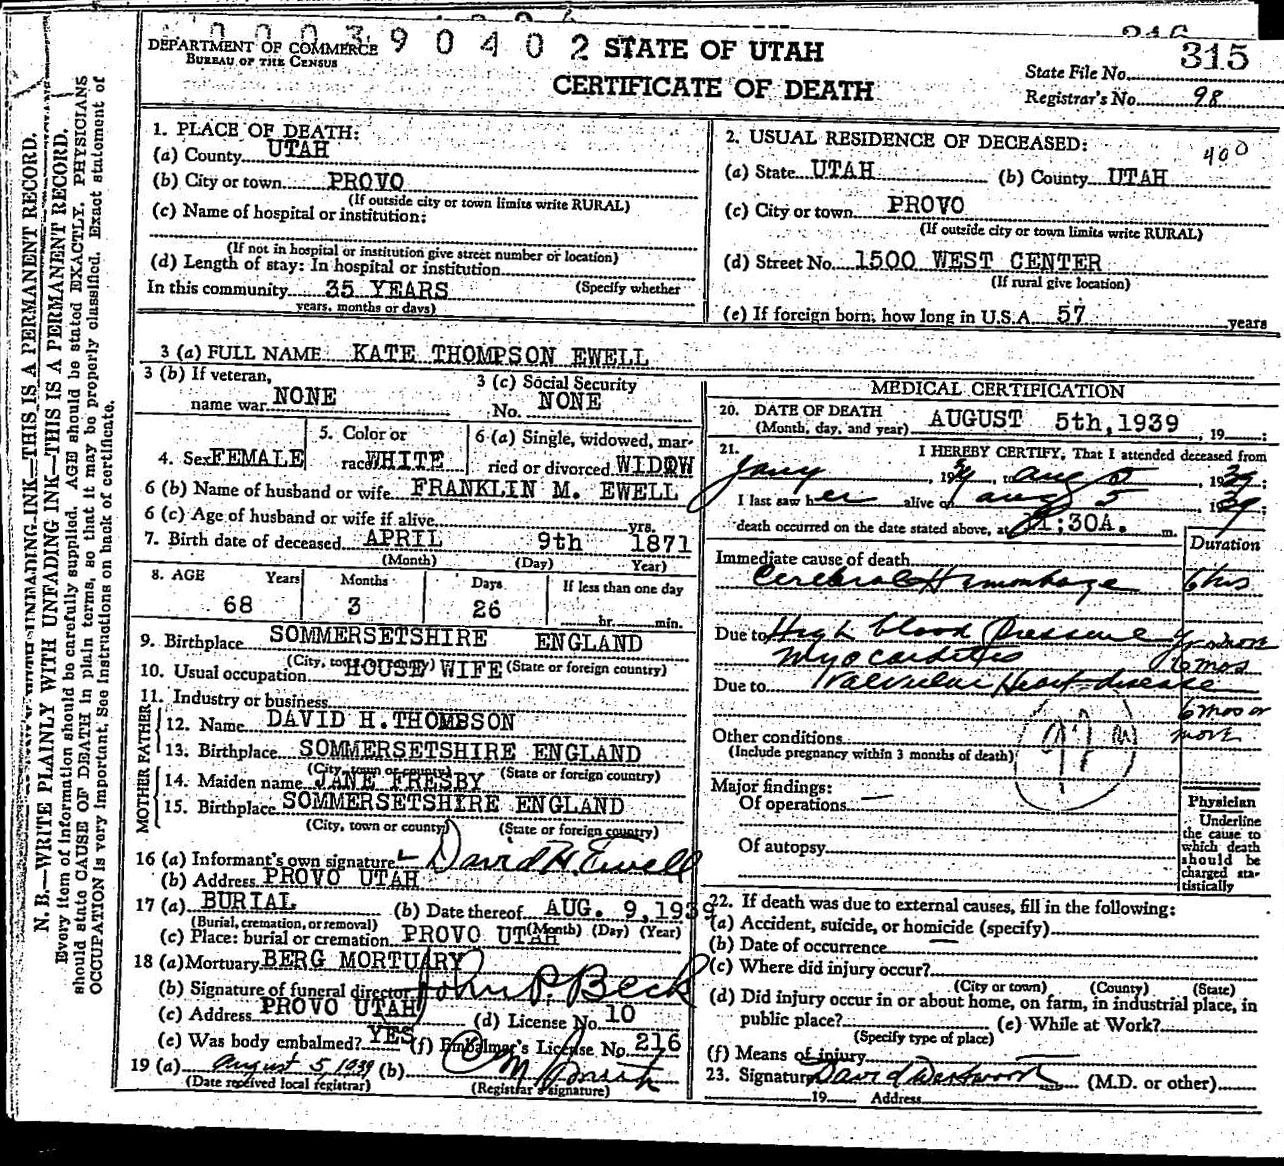 000390402
DEPARTMENT OF COMMERCE
BUREAU OF THE CENSUS
STATE OF UTAH
CERTIFICATE OF DEATH
315
State File No.
Registrar's No. 98
N. B.—WRITE PLAINLY WITH UNFADING INK—THIS IS A PERMANENT RECORD.
Every item of information should be carefully supplied. AGE should be stated EXACTLY. PHYSICIANS
should state CAUSE OF DEATH in plain terms, so that it may be properly classified. Exact statement of
OCCUPATION is very important. See instructions on back of certificate.
1. PLACE OF DEATH:
(a) County UTAH
(b) City or town PROVO
(If outside city or town limits write RURAL)
(c) Name of hospital or institution:
(If not in hospital or institution give street number or location)
(d) Length of stay: In hospital or institution
In this community 35 YEARS (Specify whether
years, months or days)
2. USUAL RESIDENCE OF DECEASED:
400
(a) State UTAH (b) County UTAH
(c) City or town PROVO
(If outside city or town limits write RURAL)
(d) Street No. 1500 WEST CENTER
(If rural give location)
(e) If foreign born, how long in U.S.A. 57 years
3 (a) FULL NAME KATE THOMPSON EWELL
3 (b) If veteran,
name war NONE
3 (c) Social Security
No. NONE
4. Sex FEMALE
5. Color or
race WHITE
6 (a) Single, widowed, mar-
ried or divorced WIDOW
6 (b) Name of husband or wife FRANKLIN M. EWELL
6 (c) Age of husband or wife if alive yrs.
7. Birth date of deceased APRIL 9th 1871
(Month) (Day) Year)
8. AGE Years Months Days If less than one day
68 3 26 hr. min.
9. Birthplace SOMMERSETSHIRE ENGLAND
(City, town or county) (State or foreign country)
10. Usual occupation HOUSE WIFE
11. Industry or business
FATHER
12. Name DAVID H. THOMBSON
13. Birthplace SOMMERSETSHIRE ENGLAND
(City, town or county) (State or foreign country)
MOTHER
14. Maiden name JANE FRESBY
15. Birthplace SOMMERSETSHIRE ENGLAND
(City, town or county) (State or foreign country)
16 (a) Informant's own signature David H. Ewell
(b) Address PROVO UTAH
17 (a) BURIAL (b) Date thereof AUG. 9, 1939
(Burial, cremation, or removal) (Month) (Day) (Year)
(c) Place: burial or cremation PROVO UTAH
18 (a) Mortuary BERG MORTUARY
(b) Signature of funeral director John P. Beck
(c) Address PROVO UTAH (d) License No. 10
(e) Was body embalmed? YES (f) Embalmer's License No. 216
19 (a) August 5, 1939 (b)
(Date received local registrar) (Registrar's signature)
MEDICAL CERTIFICATION
20. DATE OF DEATH
(Month, day, and year) AUGUST 5th, 1939, 19 :
21. I HEREBY CERTIFY, That I attended deceased from
Jany, 19 to Aug 5, 1939;
I last saw her alive on Aug 5, 1939;
death occurred on the date stated above, at 11:30A. m.
Duration
Immediate cause of death
Cerebral Hemorrhage 6 hrs
Due to High blood Pressure
Myocarditis 6 mos
Due to Valvular Heart disease
6 mos or
more
Other conditions
(Include pregnancy within 3 months of death)
Major findings:
Of operations
Of autopsy
Physician
Underline
the cause to
which death
should be
charged sta-
tistically
22. If death was due to external causes, fill in the following:
(a) Accident, suicide, or homicide (specify)
(b) Date of occurrence
(c) Where did injury occur?
(City or town) (County) (State)
(d) Did injury occur in or about home, on farm, in industrial place, in
public place? (e) While at Work?
(Specify type of place)
(f) Means of injury
23. Signature David Westwood (M.D. or other)
19 Address